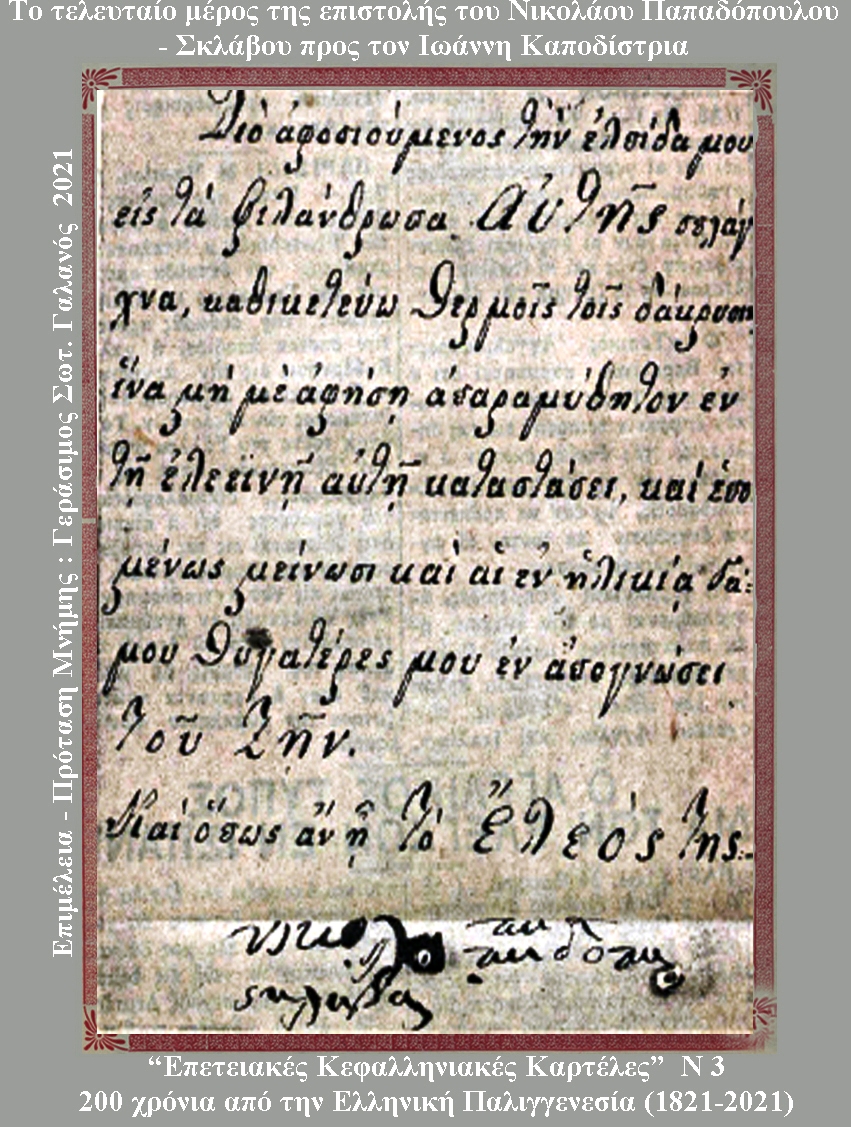 Το τελευταίο μέρος της επιστολής του Νικολάου Παπαδόπουλου
- Σκλάβου προς τον Ιωάννη Καποδίστρια
Επιμέλεια - Πρόταση Μνήμης : Γεράσιμος Σωτ. Γαλανός 2021
Διὸ ἀφοσιούμενος τὴν ἐλπίδα μου
εἰς τὰ φιλάνθρωπα Αὐτῆς σπλάγ
χνα, καθικετεύω θερμοῖς τοῖς δάκρυσι
ἵνα μὴ μὲ ἀφήσῃ ἀπαραμύθητον ἐν
τῇ ἐλεεινῇ αὐτῇ καταστάσει, καὶ ἑπο
μένως μείνωσι καὶ αἱ ἐν ἡλικίᾳ γά:
μου θυγατέρες μου ἐν ἀπογνώσει
τοῦ ζῆν.
Καὶ ὅπως ἂν ᾖ τὸ ἔλεός της.
“Επετειακές Κεφαλληνιακές Καρτέλες” Ν 3
200 χρόνια από την Ελληνική Παλιγγενεσία (1821-2021)